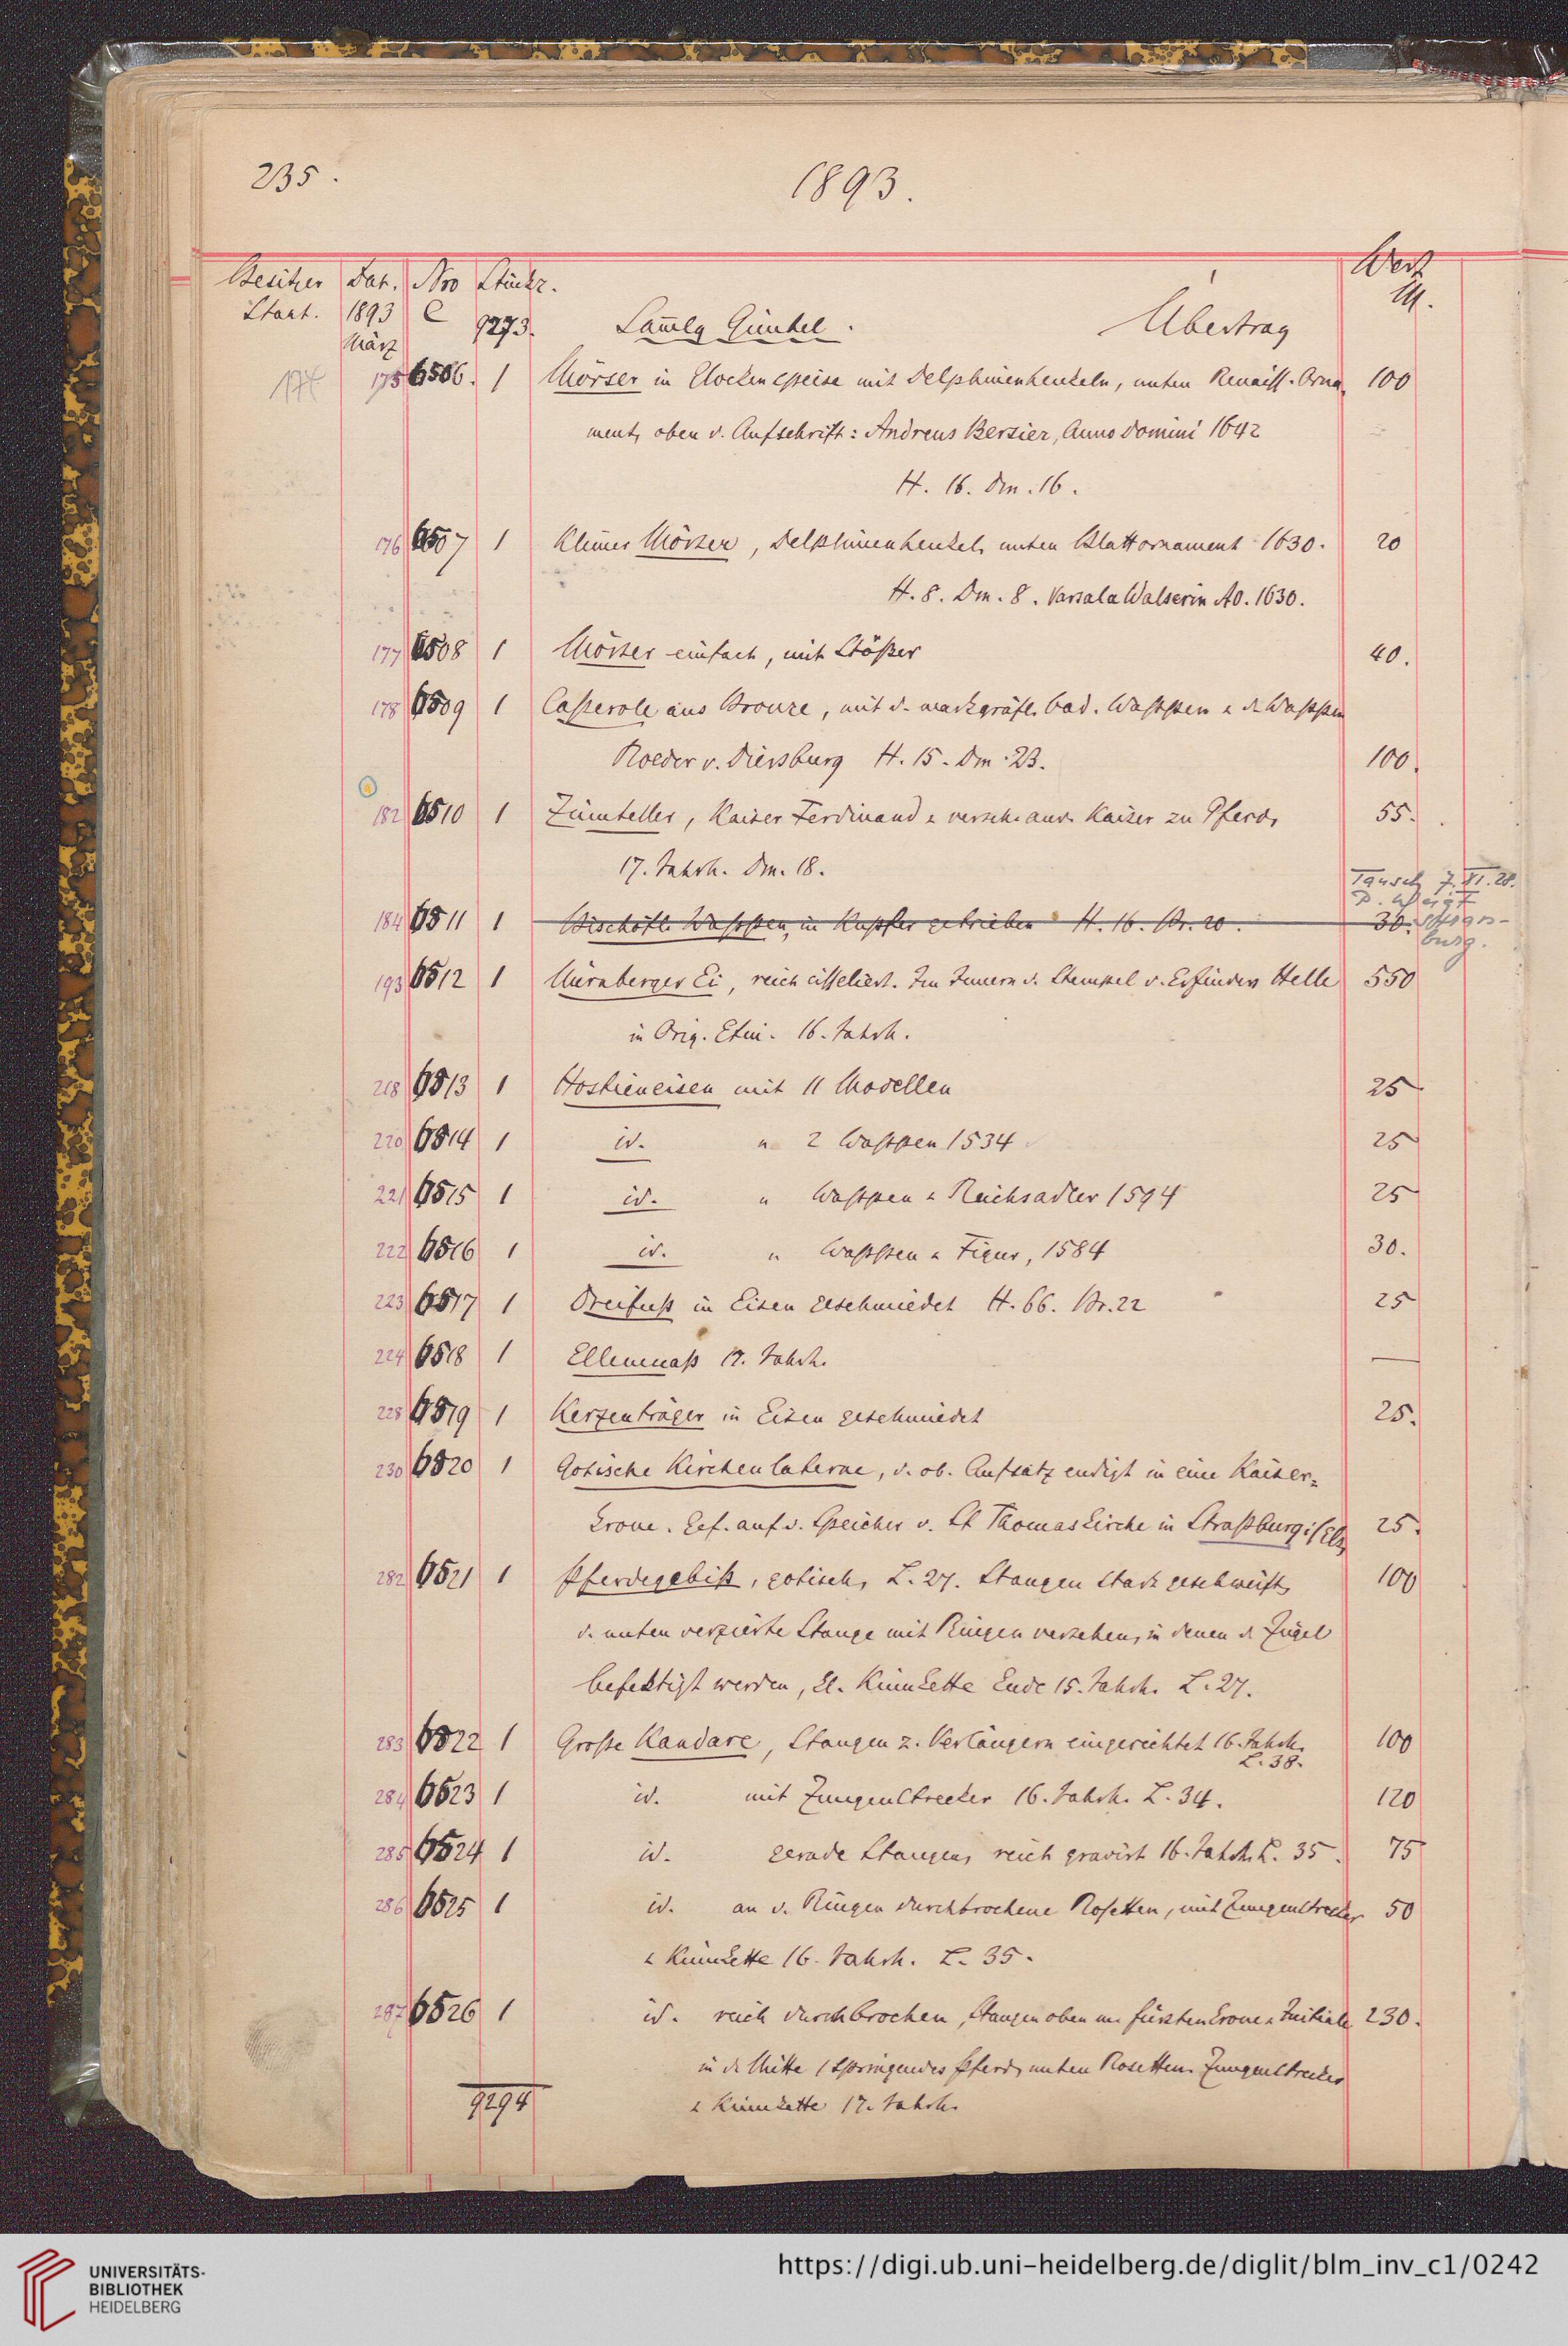 235.
1893.
Besitzer Dat. Nro Stückz. Wert
Staat. 1893 C 9273. Samlg Gimbel. Übertrag M.
März
175 6506. 1 Mörser in Glockenspeise mit Delphinenhenkeln, unten Renaiss. Orna- 100
ment, oben d. Aufschrift: Andreas Bersier, Anno Domini 1642
H. 16. Dm. 16.
176 6507 1 Kleiner Mörser, Delphinenhenkel, unten Blattornament 1630. 20
H. 8. Dm. 8. Walserin Ao. 1630.
177 6508 1 Mörser einfach, mit Stößer 40.
178 6509 1 Casserole aus Bronze, mit d. markgräfl. bad. Wappen u. d. Wappen
Roeder v. Diersburg H. 15. Dm. 23. 100.
182 6510 1 Zinnteller, Kaiser Ferdinand u. versch. and. Kaiser zu Pferd, 55.
17. Jahrh. Dm. 18.
Tausch 7. XI. 28.
184 6511 1 Bischöfl. Wappen, in Kupfer getrieben H. 16. Br. 20. 30.
burg.
193 6512 1 Nürnberger Ei, reich cisseliert. Im Innern d. Stempel d. Erfinders Helle 550
in Orig. Etui. 16. Jahrh.
218 6513 1 Hostieneisen mit 11 Modellen 25
220 6514 1 id. " 2 Wappen 1534 25
221 6515 1 id. " Wappen u. Reichsadler 1594 25
222 6516 1 id. " Wappen u. Figur, 1584 30.
223 6517 1 Dreifuss in Eisen geschmiedet H. 66. Br. 22 25
224 6518 1 Ellenmaß 17. Jahrh. —
228 6519 1 Kerzenträger in Eisen geschmiedet 25.
230 6520 1 Gotische Kirchenlaterne, d. ob. Aufsatz endigt in eine Kaiser-
krone. Gef. auf d. Speicher d. St Thomaskirche in Straßburg i/Els. 25.
282 6521 1 Pferdegebiß, gotisch, L. 27. Stangen stark geschweift, 100
d. unten verzierte Stange mit Ringen versehen, in denen d. Zügel
befestigt werden, gl. Kinnkette Ende 15. Jahrh. L. 27.
283 6522 1 Große Kandare, Stangen z. Verlängern eingerichtet 16. Jahrh. 100
L. 38.
284 6523 1 id. mit Zungenstrecker 16. Jahrh. L. 34. 120
285 6524 1 id. gerade Stangen, reich gravirt 16. Jahrh. L. 35. 75
286 6525 1 id. an d. Ringen durchbrochene Rosetten, mit Zungenstrecker 50
u. Kinnkette 16. Jahrh. L. 35.
287 6526 1 id. reich durchbrochen, Stangen oben m. Fürstenkrone u. Initiale 230.
in d. Mitte 1 springendes Pferd, unten Rosetten. Zungenstrecker
9294 u. Kinnkette 17. Jahrh.
UNIVERSITÄTS-
BIBLIOTHEK
HEIDELBERG
https://digi.ub.uni-heidelberg.de/diglit/blm_inv_c1/0242